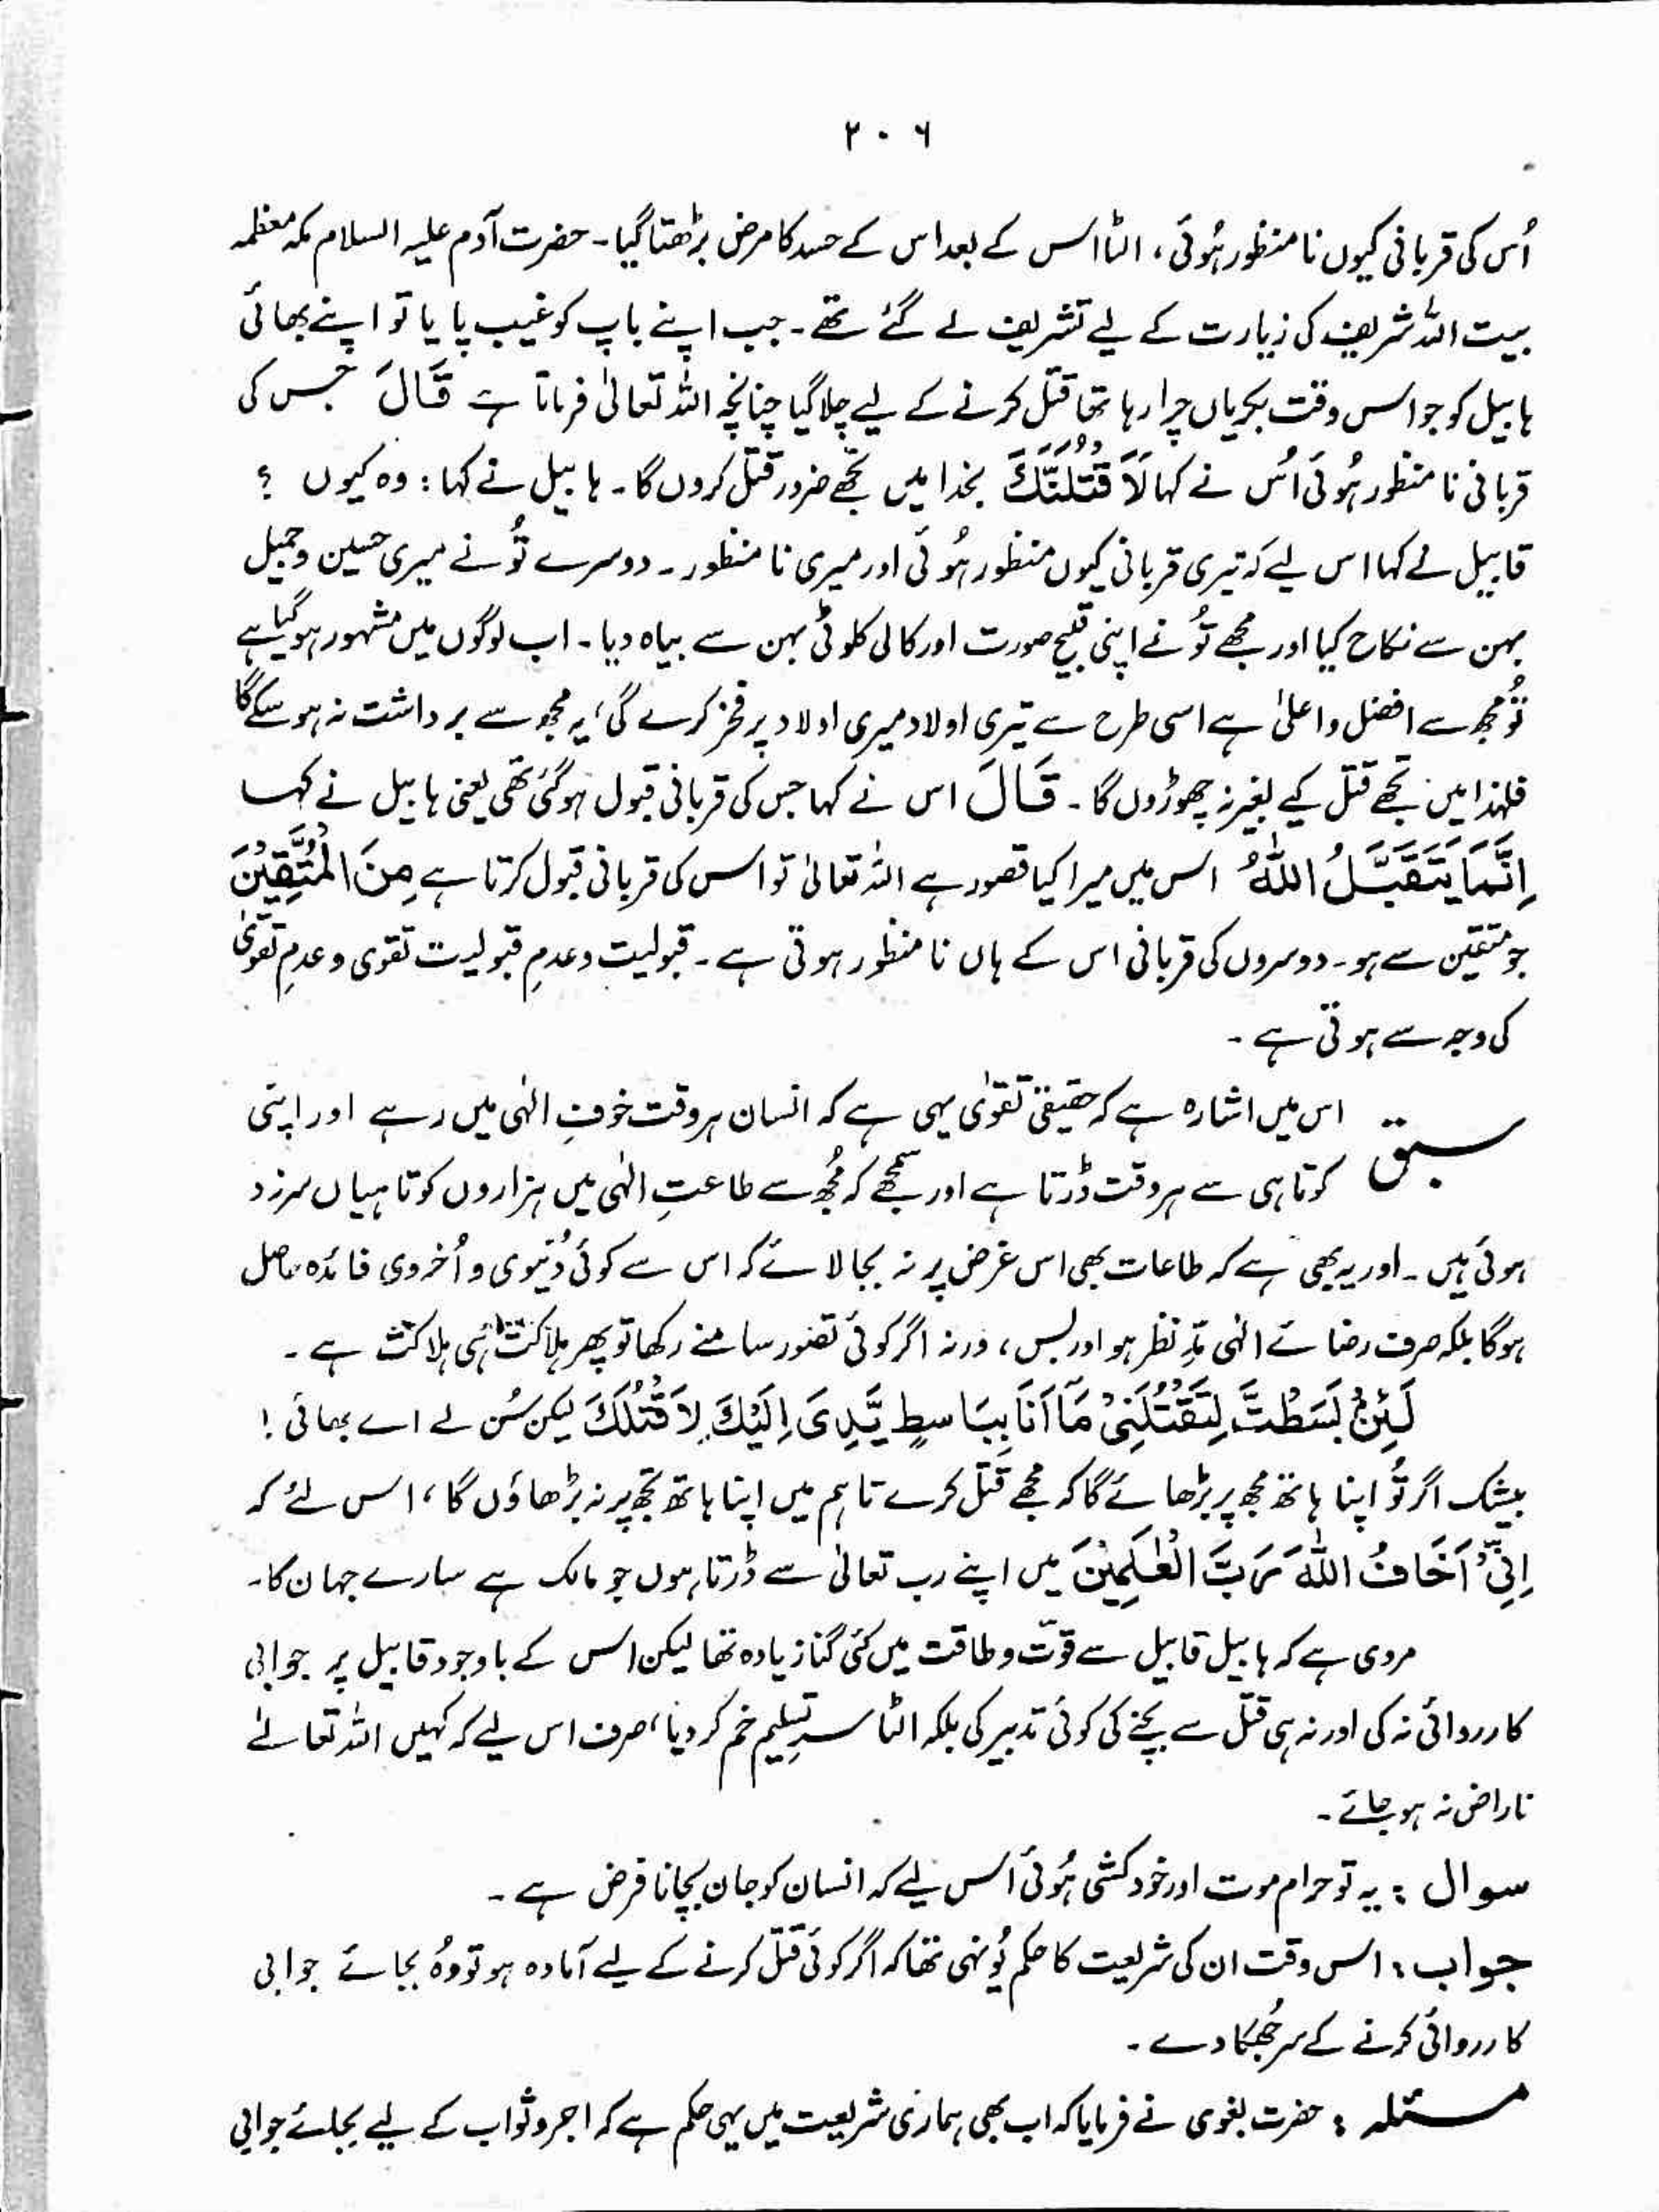 ۲۰۶
اُس کی قربانی کیوں نا منظور ہُوئی، الٹا اس کے بعد اس کے حسد کا مرض بڑھتا گیا۔ حضرت آدم علیہ السلام مکہ معظمہ
بیت اللہ شریف کی زیارت کے لیے تشریف لے گئے تھے۔ جب اپنے باپ کو غیب پایا تو اپنے بھائی
ہابیل کو جو اس وقت بکریاں چرا رہا تھا قتل کرنے کے لیے چلا گیا چنانچہ اللہ تعالیٰ فرماتا ہے قَالَ جس کی
قربانی نا منظور ہُوئی اُس نے کہا لَاَقْتُلَنَّكَ بخدا میں تجھے ضرور قتل کروں گا۔ ہابیل نے کہا: وہ کیوں ؟
قابیل نے کہا اس لیے کہ تیری قربانی کیوں منظور ہُوئی اور میری نا منظور۔ دوسرے تُو نے میری حسین و جمیل
بہن سے نکاح کیا اور مجھے تُو نے اپنی قبیح صورت اور کالی کلوٹی بہن سے بیاہ دیا۔ اب لوگوں میں مشہور ہوگیا ہے
تُو مجھ سے افضل و اعلیٰ ہے اسی طرح سے تیری اولاد میری اولاد پر فخر کرے گی، یہ مجھ سے برداشت نہ ہو سکے گا
فلہٰذا میں تجھے قتل کیے بغیر نہ چھوڑوں گا۔ قَالَ اس نے کہا جس کی قربانی قبول ہوگئی تھی یعنی ہابیل نے کہا
اِنَّمَا يَتَقَبَّلُ اللّٰهُ اس میں میرا کیا قصور ہے اللہ تعالیٰ تو اس کی قربانی قبول کرتا ہے مِنَ الْمُتَّقِيْنَ
جو متقین سے ہو۔ دوسروں کی قربانی اس کے ہاں نا منظور ہوتی ہے۔ قبولیت و عدمِ قبولیت تقوی و عدمِ تقویٰ
کی وجہ سے ہوتی ہے۔
سبق اس میں اشارہ ہے کہ حقیقی تقوٰی یہی ہے کہ انسان ہر وقت خوفِ الٰہی میں رہے اور اپنی
کوتاہی سے ہر وقت ڈرتا ہے اور سمجھے کہ مُجھ سے طاعتِ الٰہی میں ہزاروں کوتاہیاں سرزد
ہوئی ہیں۔ اور یہ بھی ہے کہ طاعات بھی اس غرض پر نہ بجا لائے کہ اس سے کوئی دُنیوی و اُخروی فائدہ حاصل
ہوگا بلکہ صرف رضائے الٰہی مدِّ نظر ہو اور بس، ورنہ اگر کوئی تصور سامنے رکھا تو پھر ہلاکت ہی ہلاکت ہے۔
لَئِنْۢ بَسَطْتَّ لِتَقْتُلَنِيْ مَاۤ اَنَا بِبَاسِطٍ يَّدِيَ اِلَيْكَ لِاَقْتُلَكَ لیکن سُن لے اے بھائی !
بیشک اگر تُو اپنا ہاتھ مجھ پر بڑھائے گا کہ مجھے قتل کرے تاہم میں اپنا ہاتھ تجھ پر نہ بڑھاؤں گا، اس لئے کہ
اِنِّيْۤ اَخَافُ اللّٰهَ رَبَّ الْعٰلَمِيْنَ میں اپنے رب تعالیٰ سے ڈرتا ہوں جو مالک ہے سارے جہان کا۔
مروی ہے کہ ہابیل قابیل سے قوّت و طاقت میں کئی گنا زیادہ تھا لیکن اس کے باوجود قابیل پر جوابی
کارروائی نہ کی اور نہ ہی قتل سے بچنے کی کوئی تدبیر کی بلکہ الٹا سرِتسلیم خم کر دیا، صرف اس لیے کہ کہیں اللہ تعالےٰ
ناراض نہ ہو جائے۔
سوال : یہ تو حرام موت اور خودکشی ہُوئی اس لیے کہ انسان کو جان بچانا فرض ہے۔
جواب : اس وقت ان کی شریعت کا حکم یُونہی تھا کہ اگر کوئی قتل کرنے کے لیے آمادہ ہو تو وُہ بجائے جوابی
کارروائی کرنے کے سر جُھکا دے۔
مسئلہ : حضرت بغوی نے فرمایا کہ اب بھی ہماری شریعت میں یہی حکم ہے کہ اجر و ثواب کے لیے بجائے جوابی